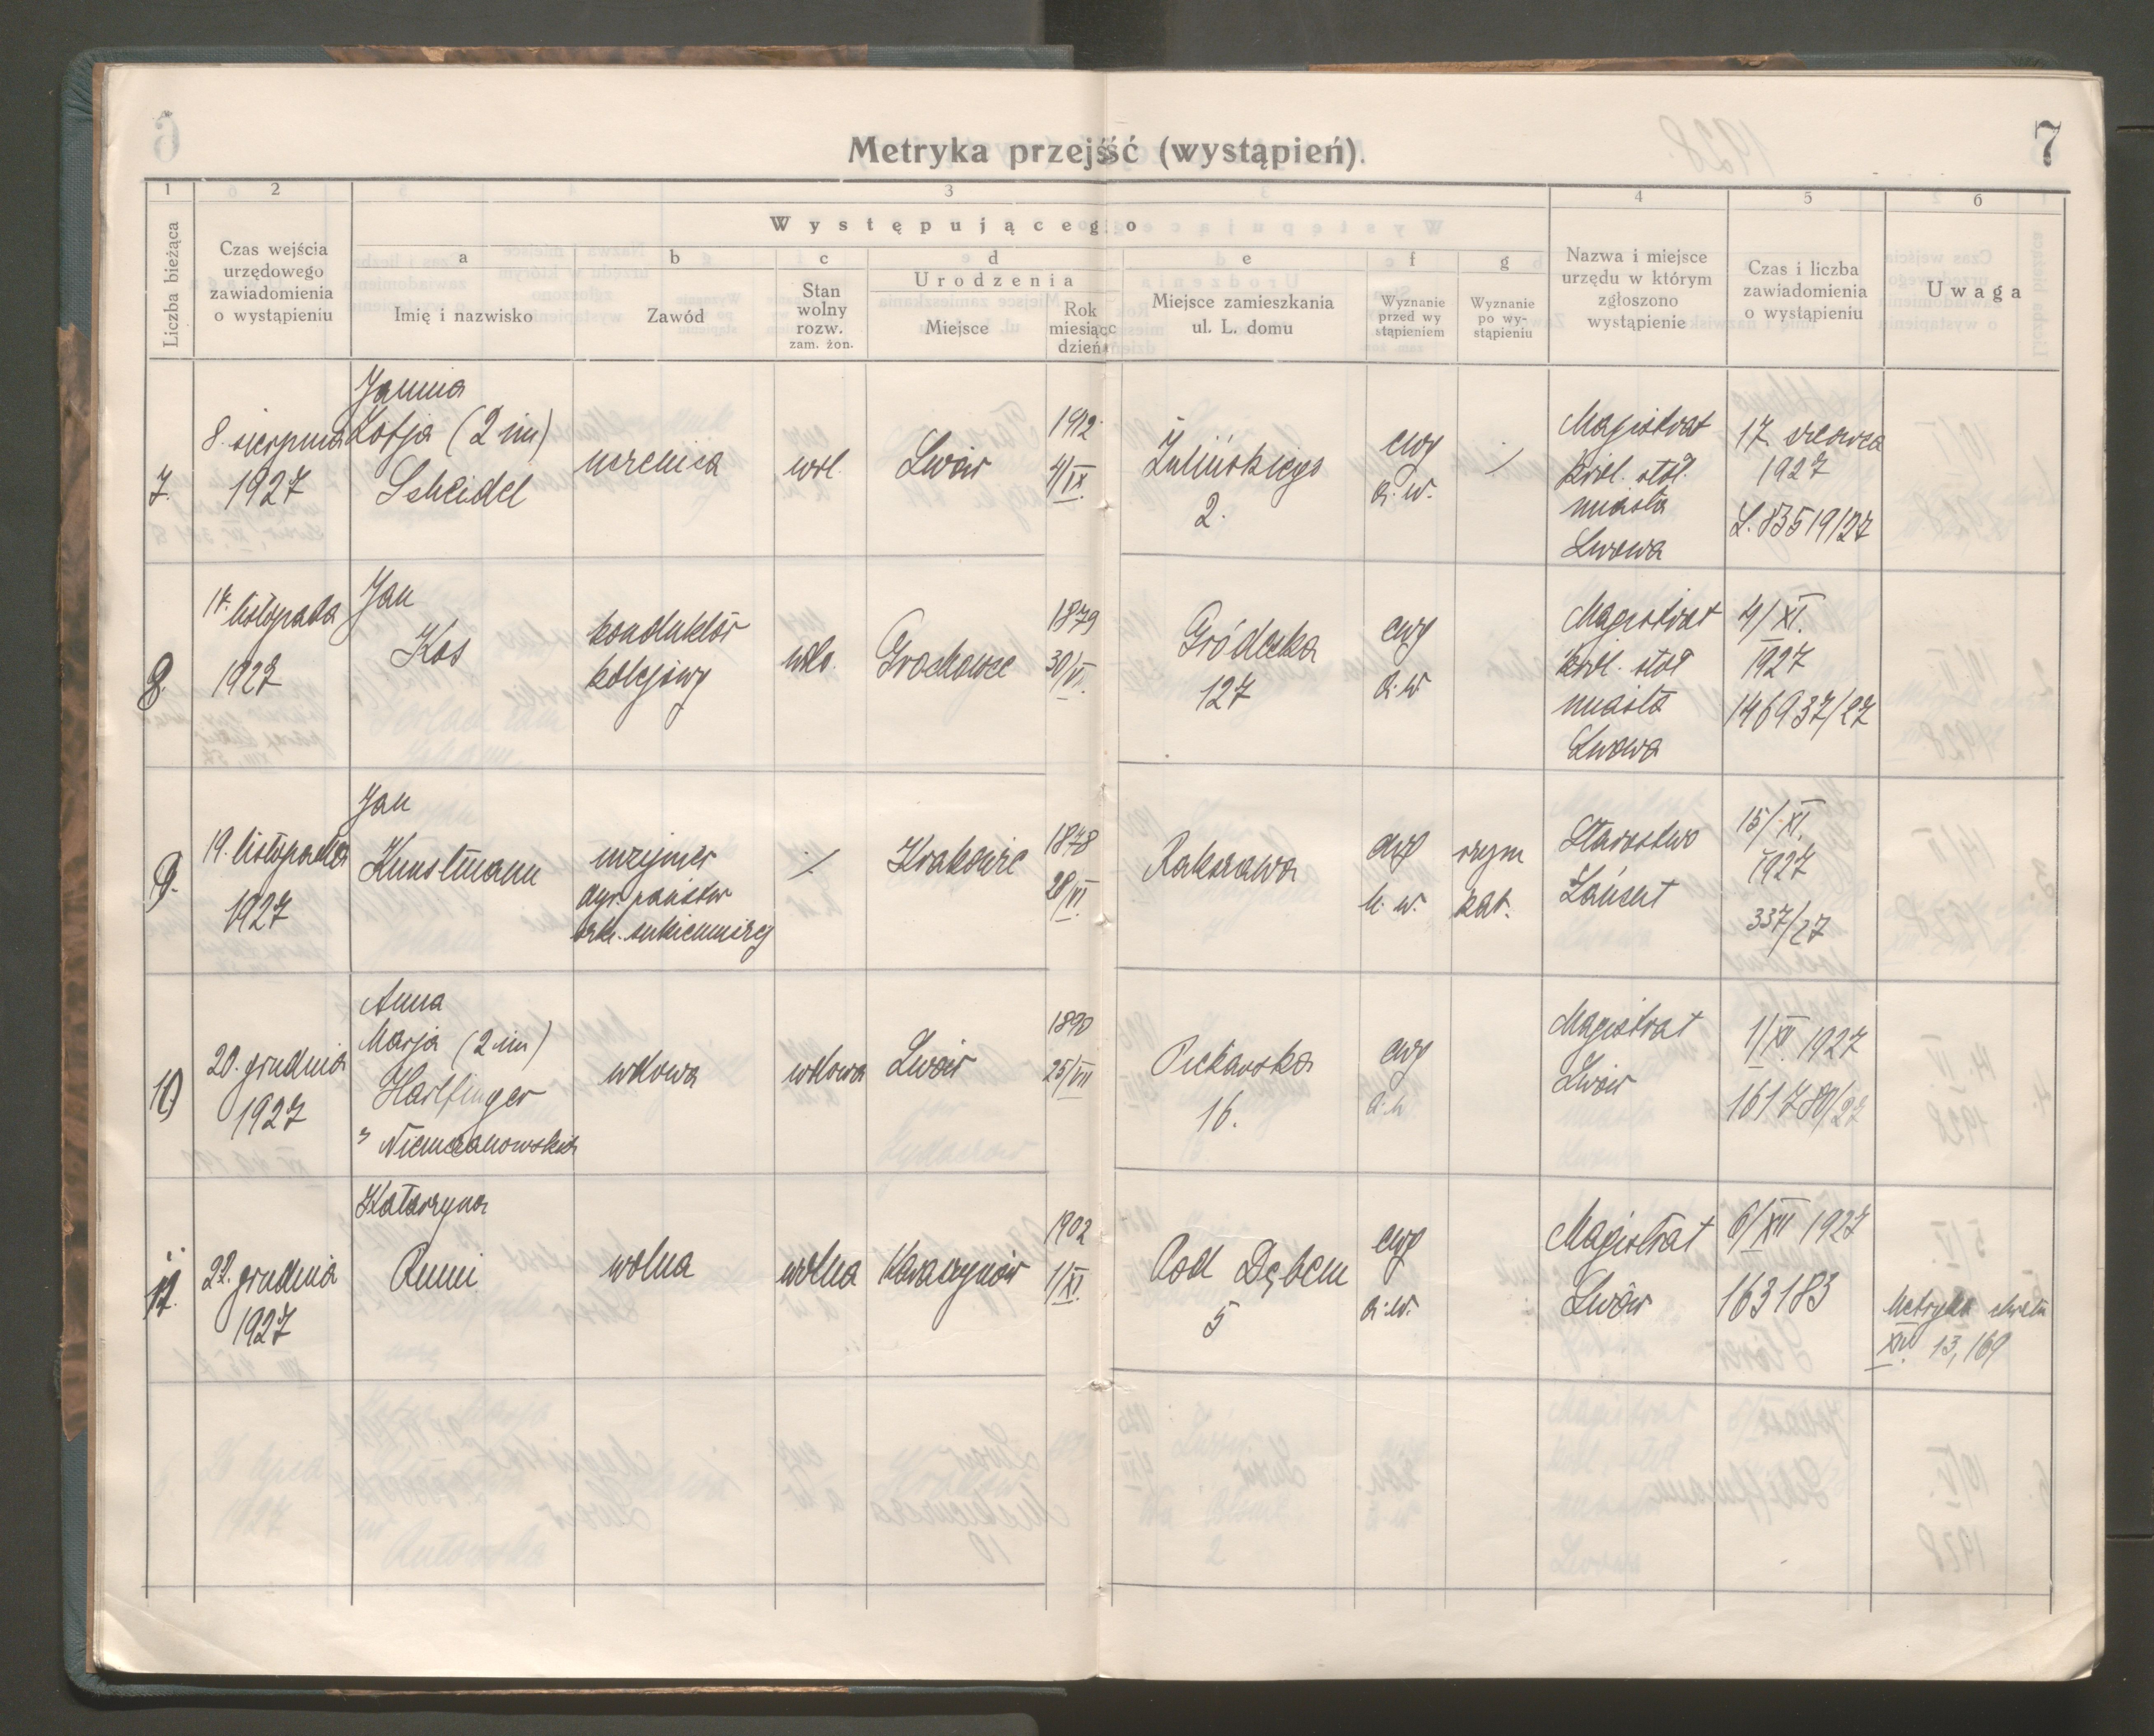 7
Metryka przejść (wystąpień).
1
2
3
4
5
6
Liczba bieżąca
Czas wejścia
urzędowego
zawiadomienia
o wystąpieniu
Występującego
a
Imię i nazwisko
b
Zawód
c
Stan
wolny
rozw.
zam. żon.
d
Urodzenia
Miejsce
Rok
miesiąc
dzień
e
Miejsce zamieszkania
ul. L. domu
f
Wyznanie
przed wy
stąpieniem
g
Wyznanie
po wy-
stąpieniu
Nazwa i miejsce
urzędu w którym
zgłoszono
wystąpienie
Czas i liczba
zawiadomienia
o wystąpieniu
Uwaga
7.
8. sierpnia
1927
Janina
Zofja (2 im)
Scheidel
uczenica
wol.
Lwów
1912
4/IX.
Żulińskiego
2.
ewg
a. w.
/
Magistrat
król. stoł.
miasta
Lwowa
17 czerwca
1927
L. 83519/27
8.
14. listopada
1927
Jan
Kos
konduktór
kolejowy
wdo.
Grochowce
1879
30/VI.
Gródecka
127
ewg
a. w
Magistrat
król. stoł
miasta
Lwowa
4/XI.
1927
146937/27
9.
19. listopada
1927
Jan
Kunstmann
inżynier
dyr. państw
szk. sukienniczej
./.
Krakowiec
1878
28/VI.
Rakszawa
ewg
h. w.
rzym
kat.
Starostwo
Łańcut
15/XI.
1927
337/27
10)
20. grudnia
1927
Anna
Marja (2 im)
Harlfinger
z Niemczanowskich
wdowa
wdowa
Lwów
1890
25/VII
Piekarska
16.
ewg
a. w
Magistrat
Lwów
1/XII. 1927
161780/27
11.
22. grudnia
1927
Katarzyna
Rumi
wolna
wolna
Kawaczynów
1902
1/XI.
Pod Dębem
5
ewg
a. w.
Magistrat
Lwów
6/XII 1927
163183
Metryka chrztu
XIV. 13, 169